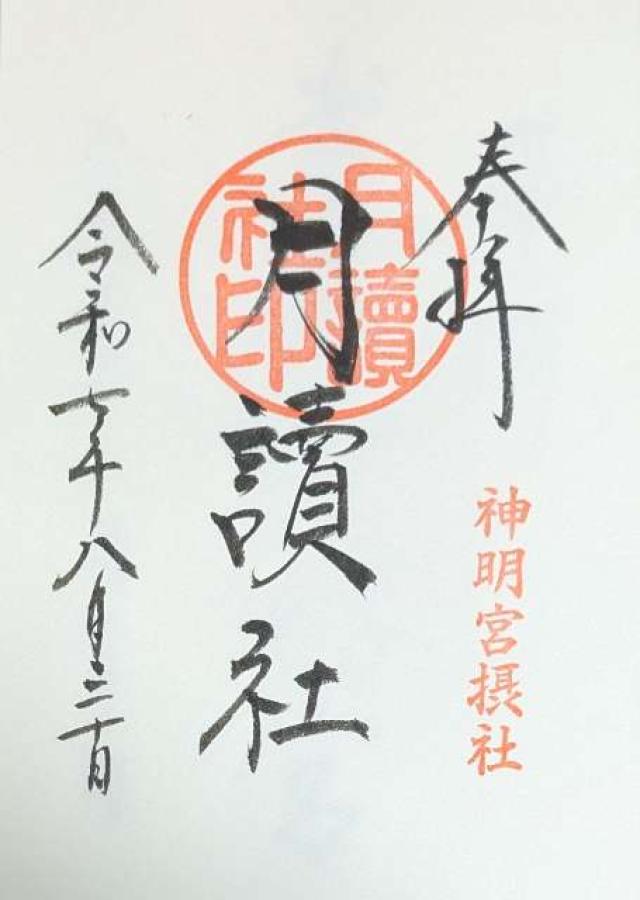 奉拝
神明宮摂社
月讀社印
月讀社
令和七年八月二十日